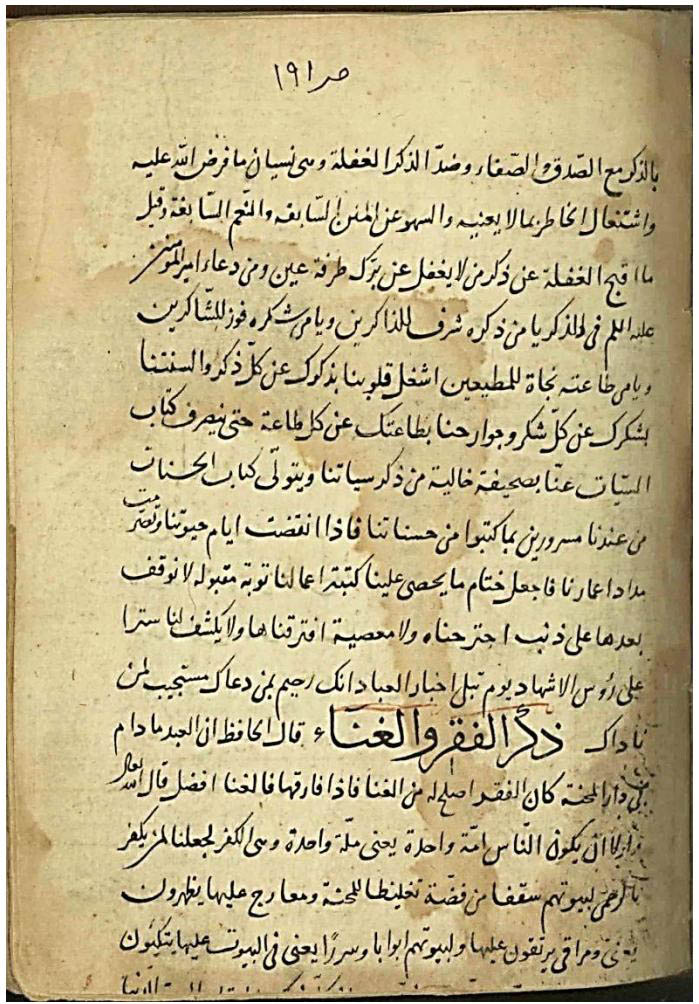 صر ١٩١
بالذكر مع الصّدق والصّفاء وضدّ الذكر الغفلة وهى نسيان ما فرض الله عليه
واشتغال الخاطر بما لا يعنيه والسهو عن المنن السّابقه والنّعم السّابغة وقيل
ما اقبح الغفلة عن ذكر من لا يغفل عن برّك طرفة عين ومن دعاء امير المؤمنين
عليه السلم فى الذكر يا من ذكره شرف للذاكرين ويا من شكره فوز للشّاكرين
ويا من طاعته نجاة للمطيعين اشغل قلوبنا بذكرك عن كلّ ذكر والسنتنا
بشكرك عن كلّ شكر وجوارحنا بطاعتك عن كل طاعة حتى ينصرف كتّاب
السيّات عنّا بصحيفة خالية من ذكر سياتنا ويتولّى كتاب الحسنات
من عندنا مسرورين بما كتبوا من حسناتنا فاذا انقضت ايام حيوتنا وتصرمت
مدد اعمارنا فاجعل ختام ما يحصى علينا كتبة اعمالنا توبة مقبوله لا توقف
بعدها على ذنب اجترحناه ولا معصية اقترفناها ولا يكشف لنا سترا
على رؤس الاشهاد يوم تبلى اخبار العباد انك رحيم بمن دعاك مستجيب لمن
ناداك ذكر الفقر والغناء قال الحافظ ان العبد ما دام
فى دار المحنة كان الفقر اصلح له من الغنا فاذا فارقها فالغنا افضل قال الله تعالى
ولولا ان يكون النّاس امّة واحدة يعنى ملّة واحدة وهى الكفر لجعلنا لمن يكفر
بالرحمن لبيوتهم سقفا من فضّة تغليظا للمحنة ومعارج عليها يظهرون
يعنى ومراقى يرتقون عليها ولبيوتهم ابوابا وسررًا يعنى فى البيوت عليها يتكئون